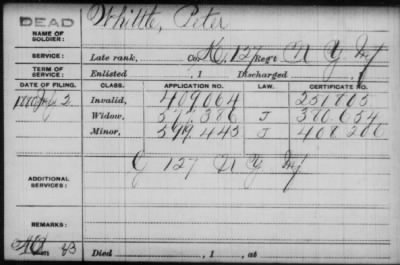 DEAD
NAME OF SOLDIER: Whittle, Peter
SERVICE: Late rank, Co. H, 127 Reg't N Y Inf
TERM OF SERVICE: Enlisted , 1 Discharged , 1
DATE OF FILING. CLASS. APPLICATION NO. LAW. CERTIFICATE NO.
1880 July 2. Invalid, 409.064 251803
Widow, 577.386 J 380.054
Minor, 599.443 J 408.200
ADDITIONAL SERVICES: G 127 N Y Inf
REMARKS:
Died , 1 , at